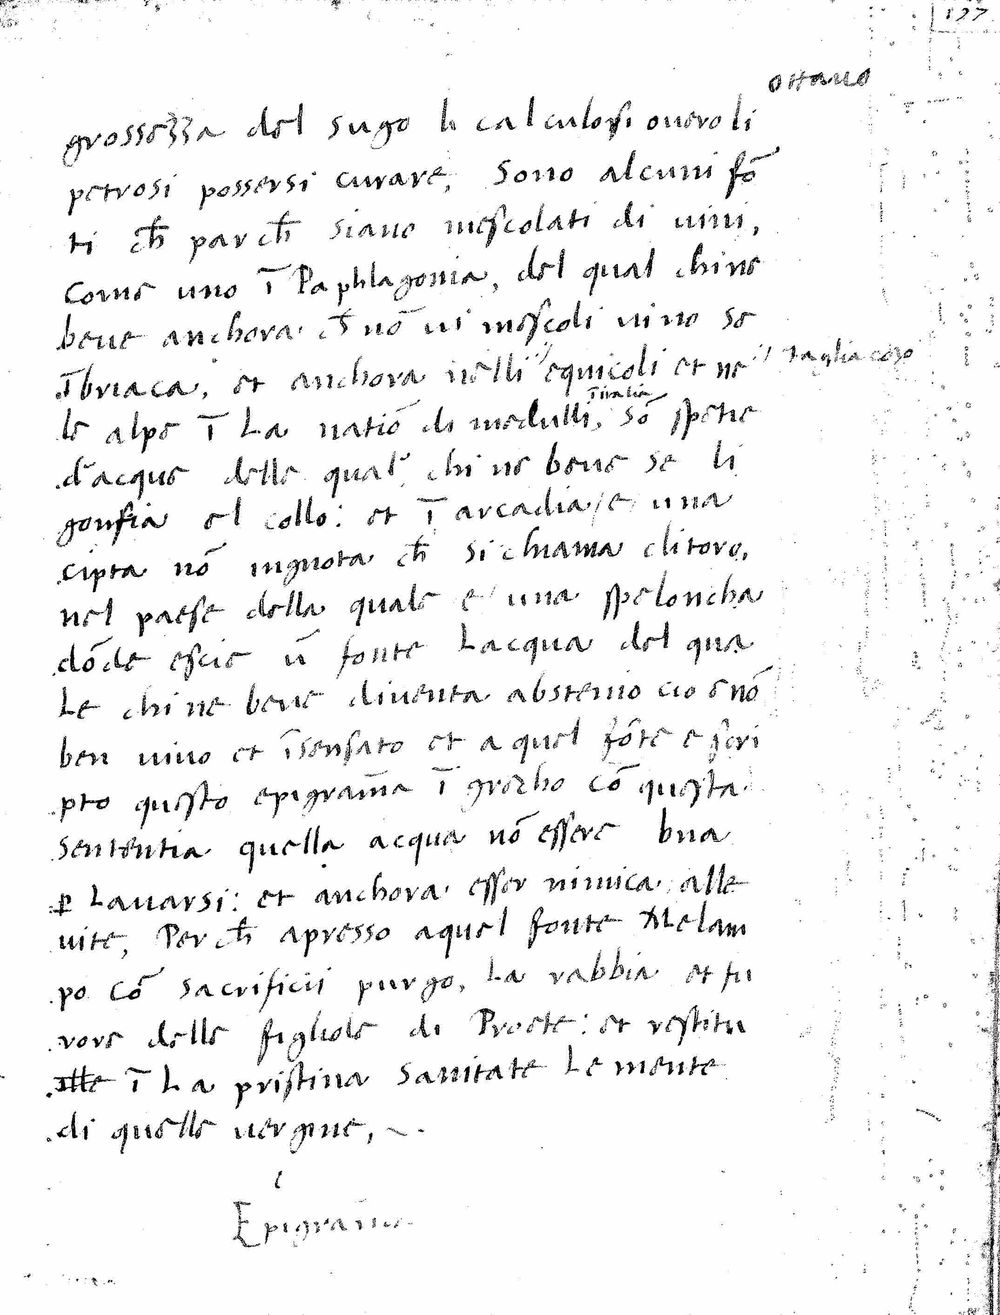 197
ottavo
grossezza del sugo li calculosi overo li
petrosi possersi curare, Sono alcuni fō
ti ch̄ par ch̄ siano mescolati di vini,
Come uno ī Paphlagonia, del qual chi ne
beve anchora ch̄ nō vi mescoli vino se
ībriaca, et anchora nelli "equicoli et ne " tagliacozo
le alpe ī La natiō di medulli, sō spetie
ī italia
d'acque delle quali chi ne beve se li
gonfia el collo: et ī arcadia e una
cipta nō ingnota ch̄ si chiama clitoro,
nel paese della quale e una speloncha
dōde escie ū fonte Lacqua del qua
Le chi ne beve diventa abstemio cio e nō
ben vivo et īsensato et a quel fōte e scri
pto questo epigram̄a ī grecho cō questa
sententia quella acqua nō essere bua
p Lavarsi: et anchora esser nimica alle
vite, Perch̄ apresso a quel fonte Melam
po cō sacrificii purgo, La rabbia et fu
rore delle figliole di Proete: et restitu
ī La pristina sanitate Le mente
di quelle vergine, ~.
Epigram̄a